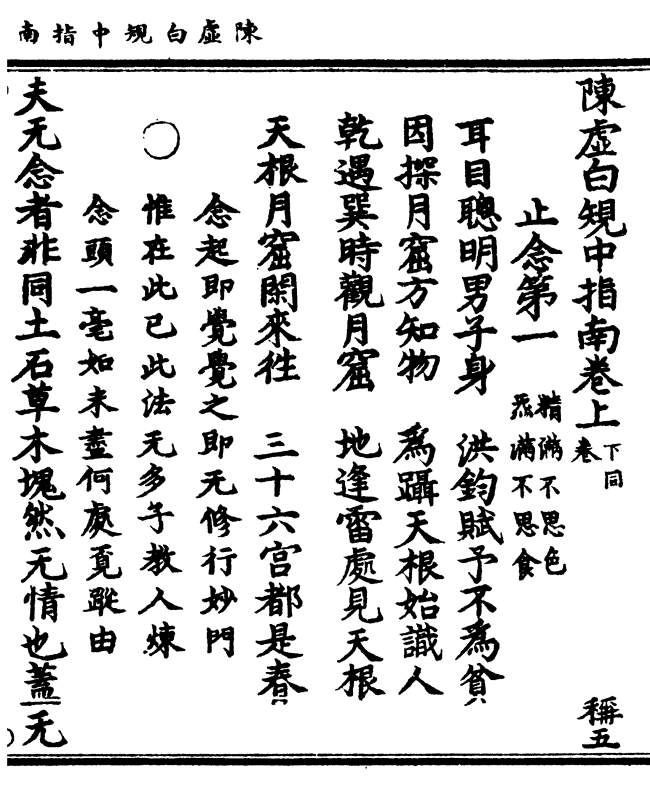 陳虛白規中指南
陳虛白規中指南卷上 下同卷 稱五
止念第一 精滿不思色 炁滿不思食
耳目聰明男子身 洪鈞賦予不為貧
因探月窟方知物 為躡天根始識人
乾遇巽時觀月窟 地逢雷處見天根
天根月窟閑來徃 三十六宮都是春
念起即覺覺之即无修行妙門
惟在此已此法无多子教人煉
念頭一毫如未盡何處覔蹤由
夫无念者非同土石草木塊然无情也蓋无